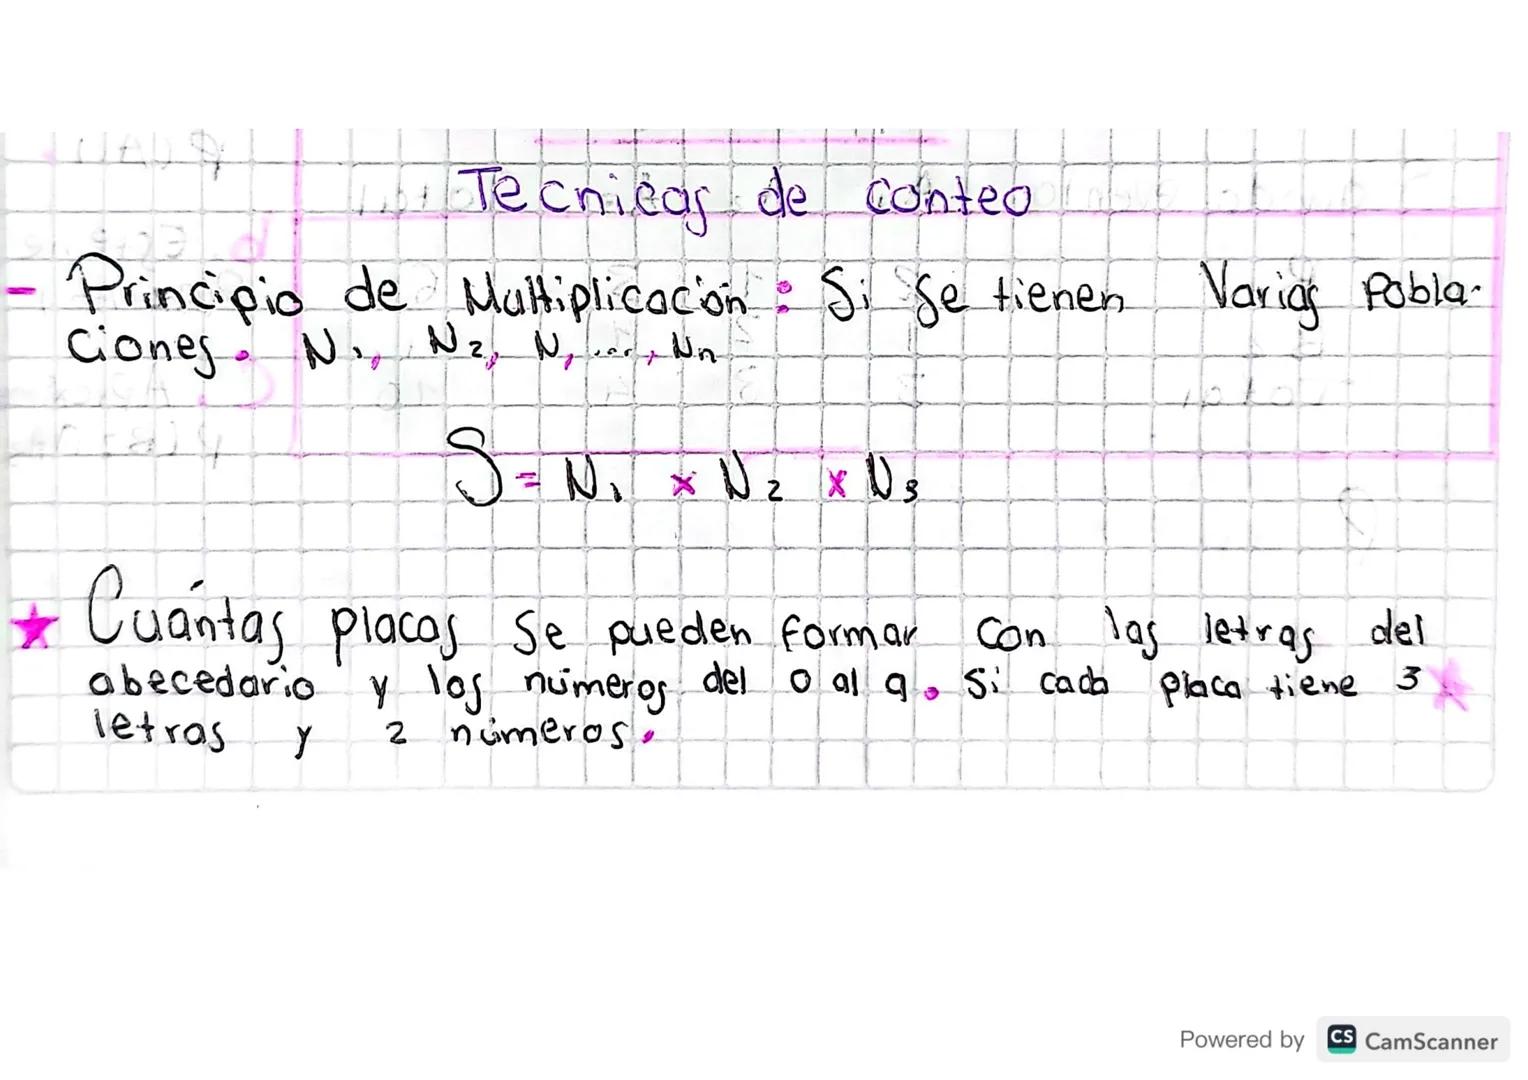 Tecnicas de conteo
- Principio de Multiplicación: Si se tienen Varias Pobla-
ciones. N1, N2, N, ..., Nn
S = N1 x N2 x N3
Cuántas placas se pueden formar con las letras del
abecedario y los números del 0 al 9. Si cada placa tiene 3
letras y 2 números.
Powered by CS CamScanner